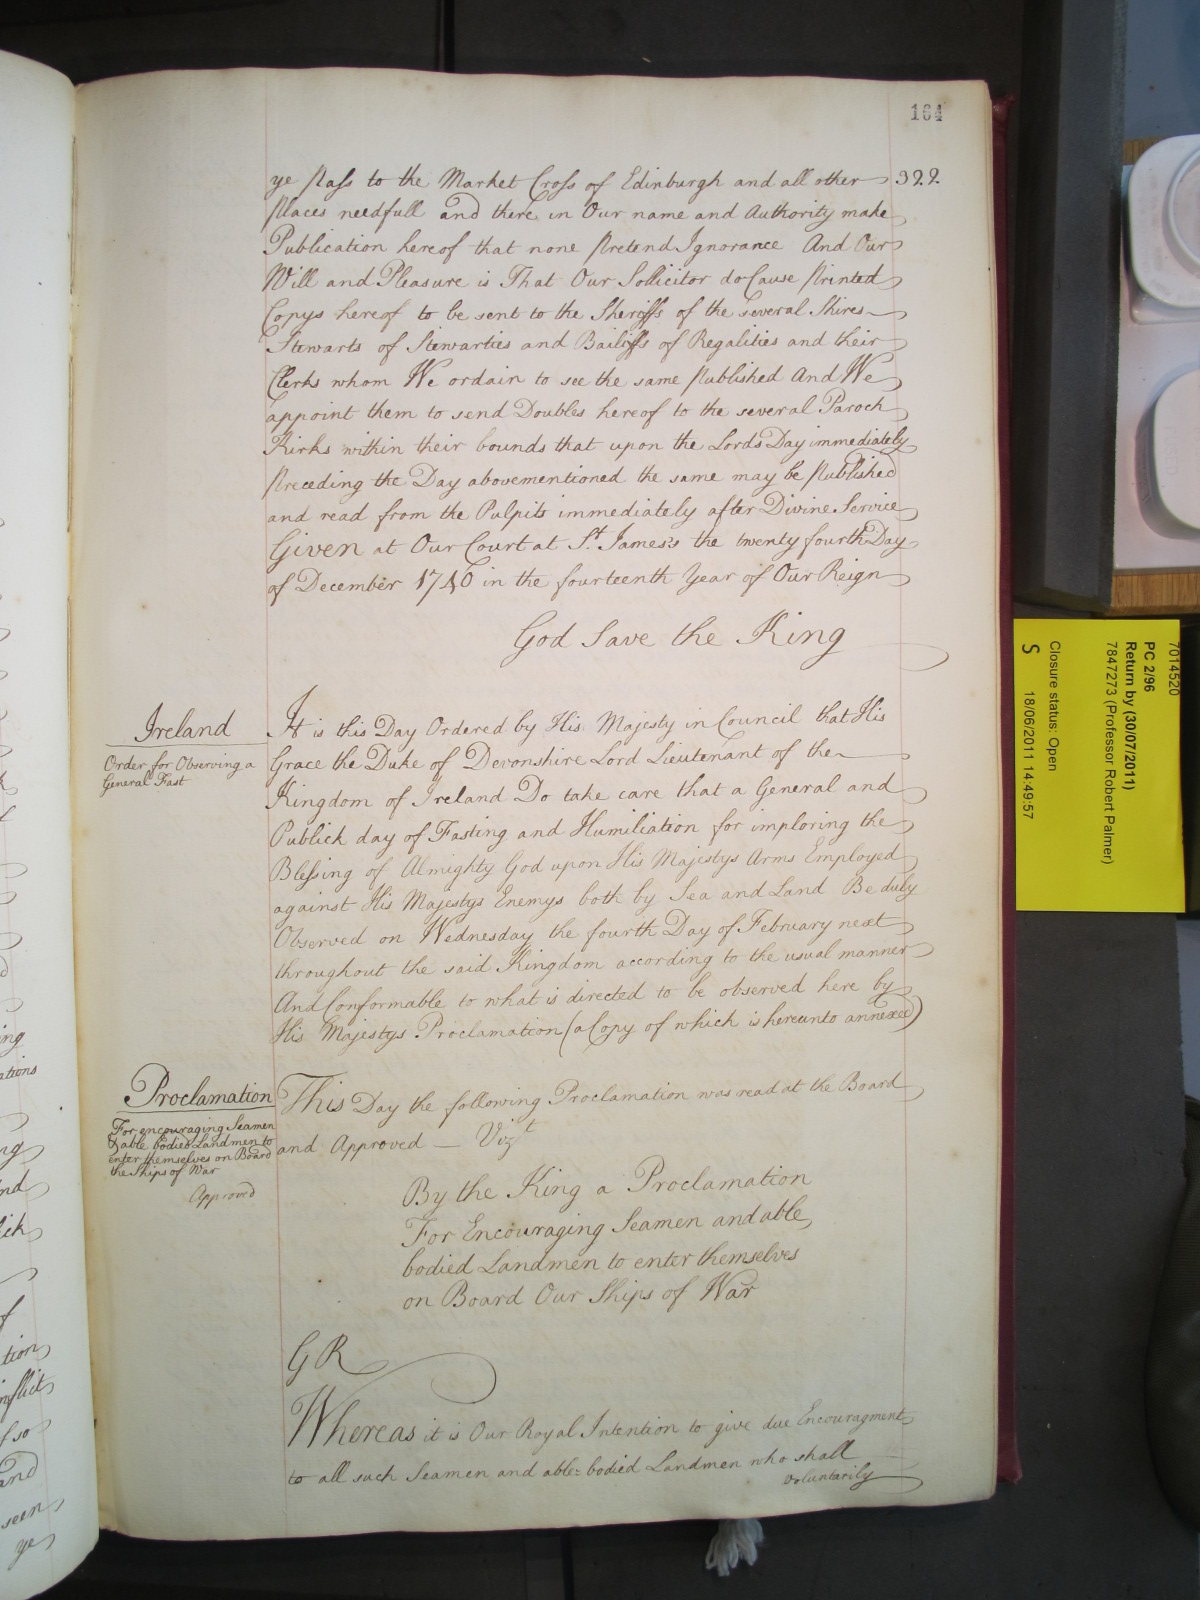 164
322.
ye Pass to the Market Cross of Edinburgh and all other
Places needfull and there in Our name and Authority make
Publication hereof that none Pretend Ignorance And Our
Will and Pleasure is That Our Sollicitor do Cause Printed
Copys hereof to be sent to the Sheriffs of the several Shires
Stewarts of Stewarties and Bailiffs of Regalities and their
Clerks whom We ordain to see the same Published And We
appoint them to send Doubles hereof to the several Paroch
Kirks within their bounds that upon the Lords Day immediately
Preceding the Day abovementioned the same may be Published
and read from the Pulpits immediately after Divine Service
Given at Our Court at St. James's the twenty fourth Day
of December 1740 in the fourteenth Year of Our Reign
God Save the King
Ireland
Order for Observing a
General Fast
It is this Day Ordered by His Majesty in Council that His
Grace the Duke of Devonshire Lord Lieutenant of the
Kingdom of Ireland Do take care that a General and
Publick day of Fasting and Humiliation for imploring the
Blessing of Almighty God upon His Majestys Arms Employed
against His Majestys Enemys both by Sea and Land Be duly
Observed on Wednesday the fourth Day of February next
throughout the said Kingdom according to the usual manner
And Conformable to what is directed to be observed here by
His Majestys Proclamation (a Copy of which is hereunto annexed)
Proclamation
For encouraging Seamen
& able bodied Landmen to
enter themselves on Board
the Ships of War
Approved
This Day the following Proclamation was read at the Board
and Approved — Vizt
By the King a Proclamation
For Encouraging Seamen and able
bodied Landmen to enter themselves
on Board Our Ships of War
G R
Whereas it is Our Royal Intention to give due Encouragment
to all such Seamen and able-bodied Landmen who shall
voluntarily
7014520
PC 2/96
Return by (30/07/2011)
7847273 (Professor Robert Palmer)
Closure status: Open
S 18/06/2011 14:49:57
ing
ations
ng
nd
ich
of
tion
nflict
f so
and
seen
ye